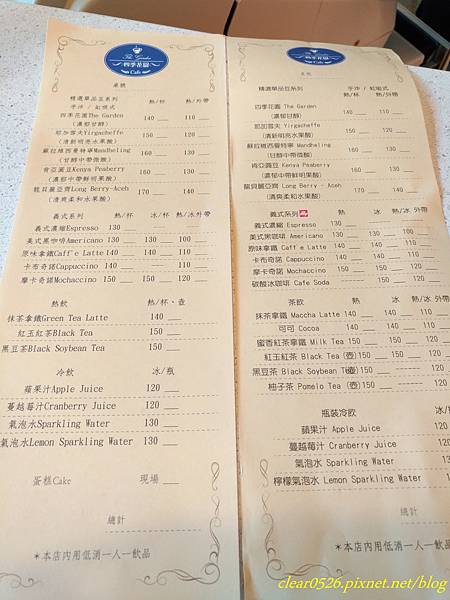 The Garden
四季花園
Cafe
菜單
精選單品豆系列
手沖 / 虹吸式 熱/杯 熱/外帶
四季花園The Garden 140 110
(濃郁甘醇)
耶加雪夫Yirgacheffe 150 120
(清新明亮水果酸)
蘇拉維西曼特寧Mandheling 160 130
(甘醇中帶微酸)
肯亞圓豆Kenya Peaberry 160 130
(濃郁中帶鮮明果酸)
龍貝麗亞齊Long Berry-Aceh 170 140
(清爽柔和水果酸)
義式系列 熱/杯 冰/杯 熱/冰外帶
義式濃縮Espresso 130
美式黑咖啡Americano 130 130 100
原味拿鐵Caff'e Latte 140 140 110
卡布奇諾Cappuccino 140 110
摩卡奇諾Mochaccino 150 150 120
熱飲 熱/杯、壺
抹茶拿鐵Green Tea Latte 140
紅玉紅茶Black Tea 150
黑豆茶Black Soybean Tea 150
冷飲 冰/瓶
蘋果汁Apple Juice 120
蔓越莓汁Cranberry Juice 120
氣泡水Sparkling Water 130
氣泡水Lemon Sparkling Water 130
蛋糕Cake 現場
總計
*本店內用低消一人一飲品
The Garden
四季花園
Cafe
菜單
精選單品豆系列 手沖 / 虹吸式
熱/杯 熱/外帶
四季花園 The Garden 140 110
(濃郁甘醇)
耶加雪夫Yirgacheffe 150 120
(清新明亮水果酸)
蘇拉維西曼特寧 Mandheling 160 130
(甘醇中帶微酸)
肯亞圓豆 Kenya Peaberry 160 130
(濃郁中帶鮮明果酸)
龍貝麗亞齊 Long Berry - Aceh 170 140
(清爽柔和水果酸)
義式系列 熱 冰 熱/冰 外帶
義式濃縮 Espresso 130
美式黑咖啡 Americano 130 130 100
原味拿鐵 Caff'e Latte 140 140 110
卡布奇諾 Cappuccino 140 110
摩卡奇諾 Mochaccino 150 150 120
碳酸冰咖啡 Cafe Soda 150
茶飲 熱 冰 熱/冰 外帶
抹茶拿鐵 Maccha Latte 140 140 110
可可 Cocoa 140 140 110
蜜香紅茶拿鐵 Milk Tea 150 150 120
紅玉紅茶 Black Tea (壺)150 150 120
黑豆茶 Black Soybean Tea(壺)150 120
柚子茶 Pomelo Tea (壺)150 120
瓶裝冷飲 冰/瓶
蘋果汁 Apple Juice 120
蔓越莓汁 Cranberry Juice 120
氣泡水 Sparkling Water 130
檸檬氣泡水 Lemon Sparkling Water 130
總計
*本店內用低消一人一飲品
clear0526.pixnet.net/blog